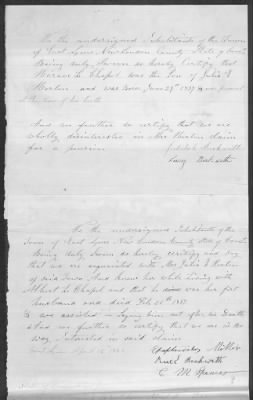 We the undersigned Inhabitants of the Town
of East Lyme New London County State of Conn
Being duly Sworn do hereby Certify that
Horace L Chapel was the Son of Julia E
and was Born June 29th 1857 & we present
at the time of his birth
And we further so certify that we are
wholly disinterested in Mrs claim
for a pension
Beckwith
Lucy Beckwith
We the undersigned Inhabitants of the
Town of East Lyme New London County State of Conn
Being duly Sworn do hereby certify and say
that we are acquainted with Mrs Julia E
of said Town And knew her while living with
Chapel and that he was her first
husband and died Feb
& we assisted in laying him out after his Death
And we further so certify that we are in no
way interested in said claim
East Lyme April
Beckwith
C M